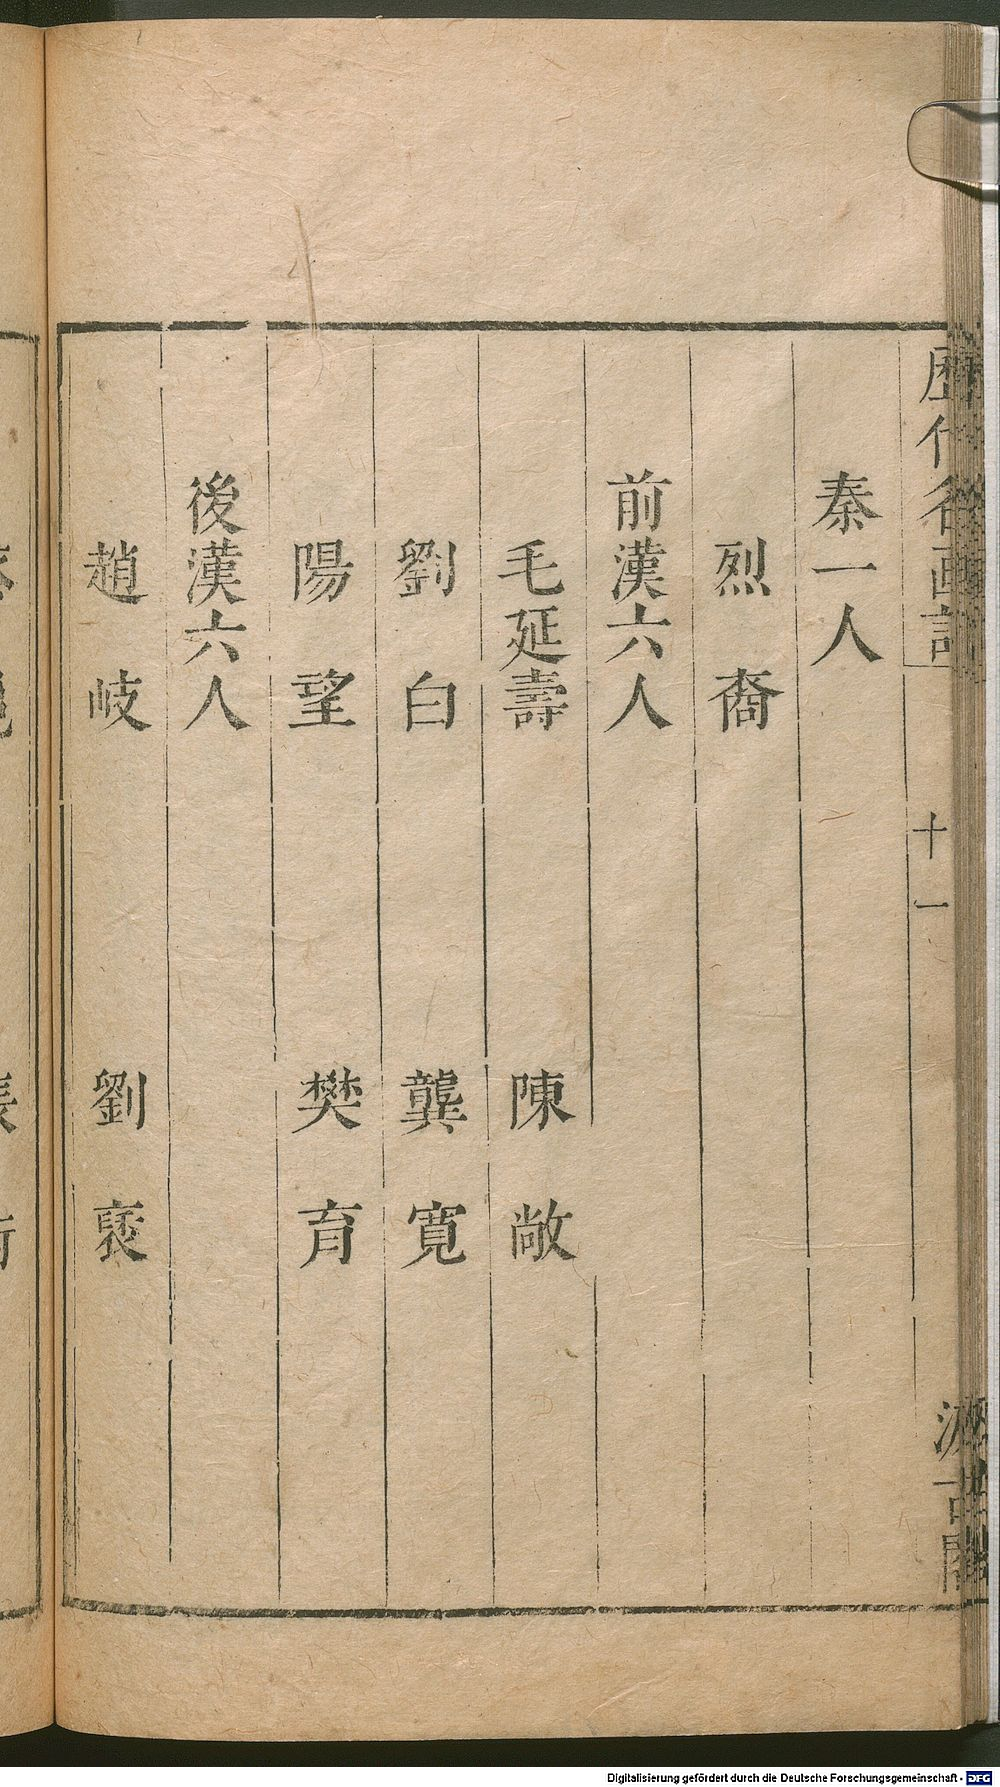 歷代名畫記
十一
汲古閣
秦一人
烈裔
前漢六人
毛延壽 陳敞
劉白 龔寬
陽望 樊育
後漢六人
趙岐 劉褒
Digitalisierung gefördert durch die Deutsche Forschungsgemeinschaft - DFG